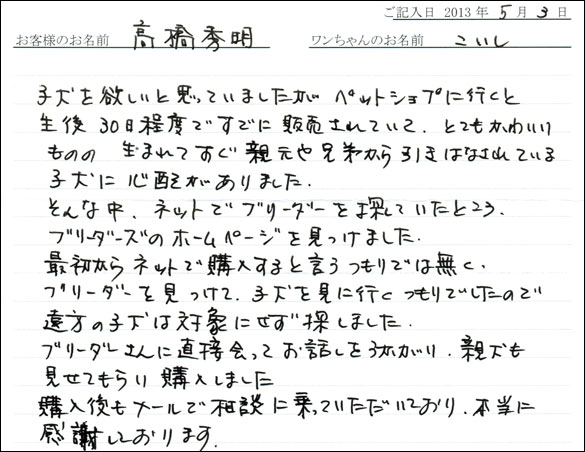 ご記入日 2013 年 5 月 3 日
お客様のお名前 高橋秀明 ワンちゃんのお名前 こいし
子犬を欲しいと思っていましたが ペットショプに行くと
生後 30日程度ですでに販売されていて、とてもかわいい
ものの 生まれてすぐ親元や兄弟から引きはなされている
子犬に心配がありました.
そんな中、ネットでブリーダーを探していたところ、
ブリーダーズのホームページを見つけました.
最初からネットで購入すると言うつもりでは無く、
ブリーダーを見つけて、子犬を見に行くつもりでしたので
遠方の子犬は対象にせず探しました.
ブリーダーさんに直接会ってお話しをうかがい、親犬も
見せてもらい購入しました
購入後もメールで相談に乗っていただいており、本当に
感謝しております.